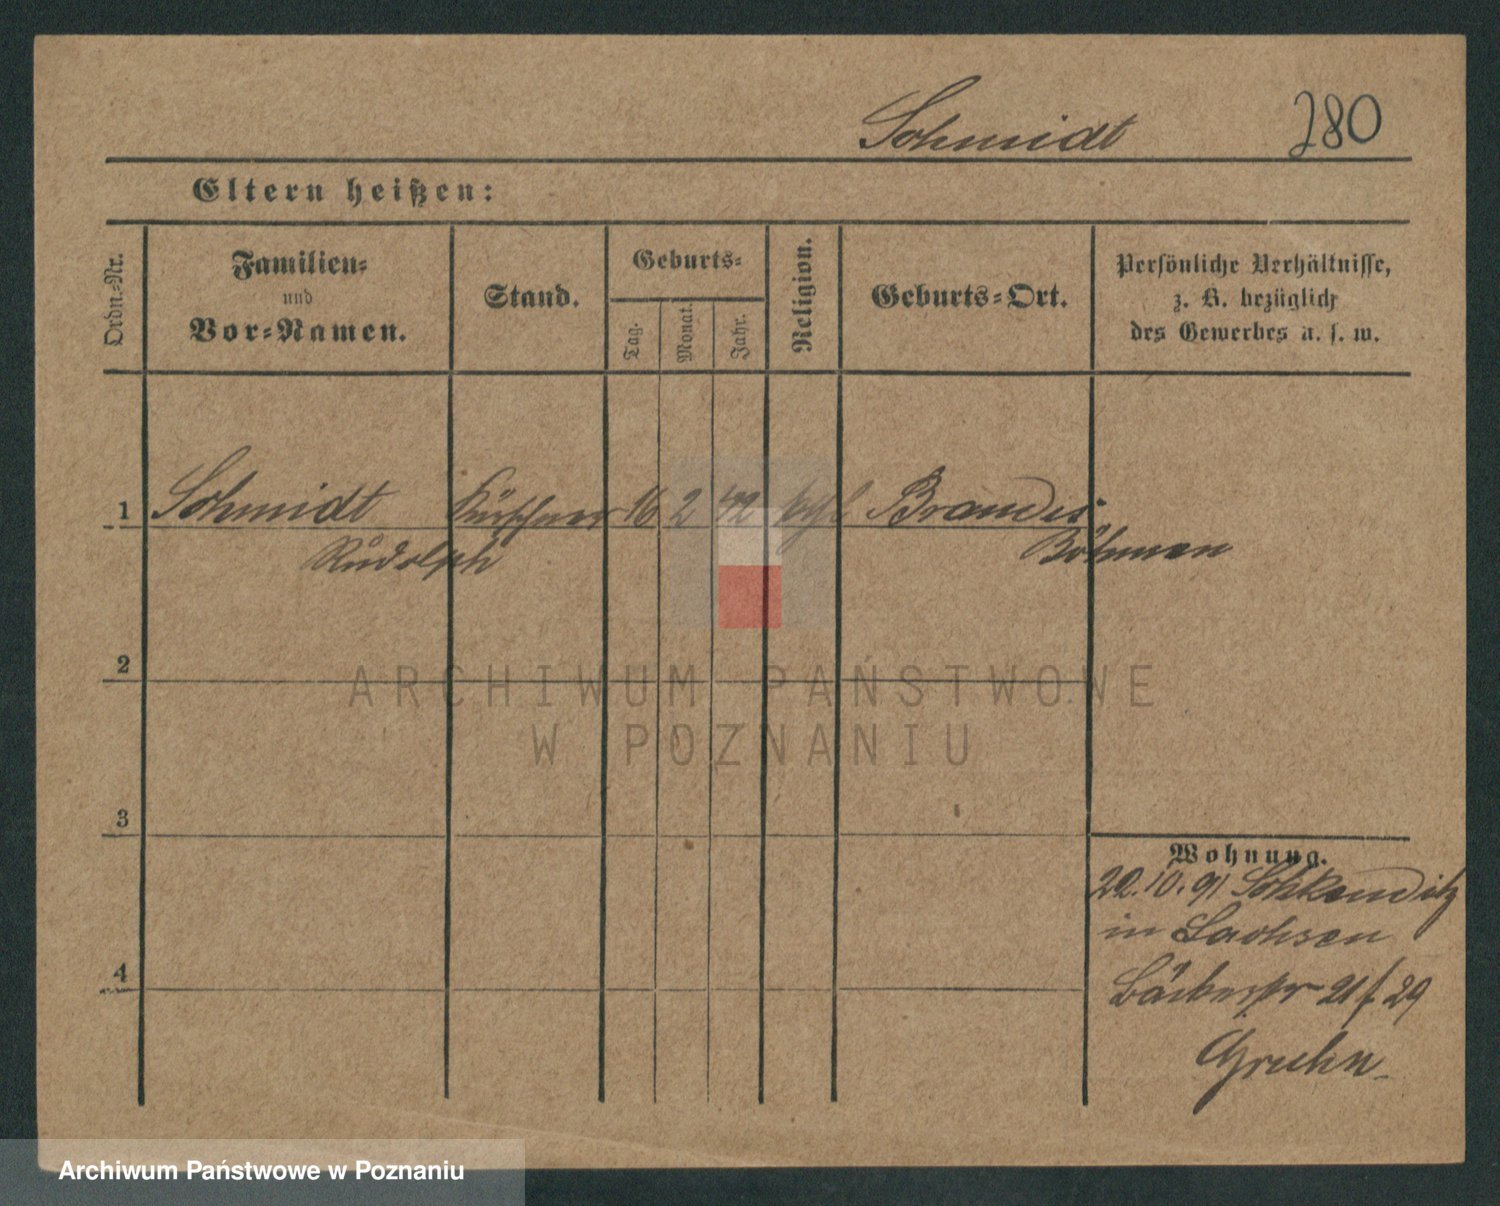 Schmidt 280
Eltern heißen:
Ordn.-Nr.
Familien-
und
Vor-Namen.
Stand.
Geburts-
Tag.
Monat.
Jahr.
Religion.
Geburts-Ort.
Persönliche Verhältnisse,
z. B. bezüglich
des Gewerbes u. s. w.
1 Schmidt Kürschner 16 2 42 Brandis
Rudolph Böhmen
2
ARCHIWUM PAŃSTWOWE
W POZNANIU
3
Wohnung.
22.10.91 Schkeuditz
in Sachsen
4
Bäckerstr 21 f. 29
Gruhn
Archiwum Państwowe w Poznaniu